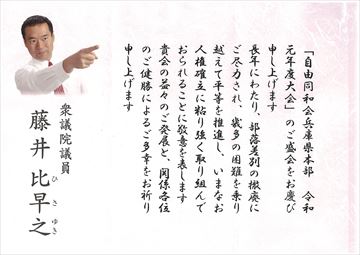 「自由同和会兵庫県本部 令和
元年度大会」のご盛会をお慶び
申し上げます
長年にわたり、部落差別の撤廃に
ご尽力され、幾多の困難を乗り
越えて平等を推進し、いまなお
人権確立に粘り強く取り組んで
おられることに敬意を表します
貴会の益々のご発展と、関係各位
のご健勝によるご多幸をお祈り
申し上げます
衆議院議員
藤井比早之
ひさゆき